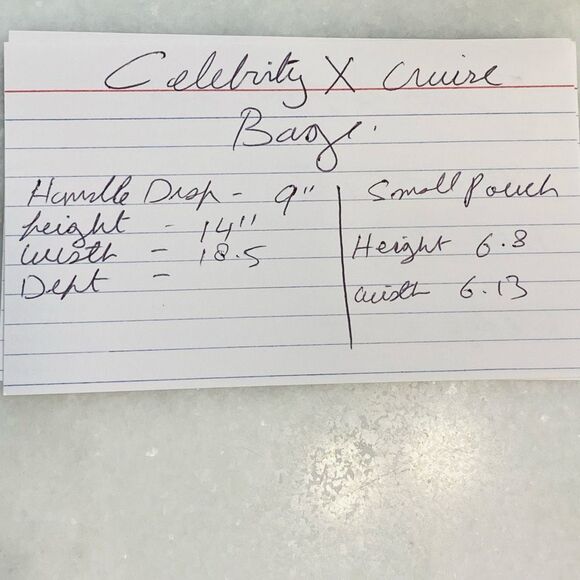 Celebrity X Cruise
Bag.
Handle Drop - 9"
height - 14"
width - 18.5
Dept -
Small Pouch
Height 6.8
width 6.13